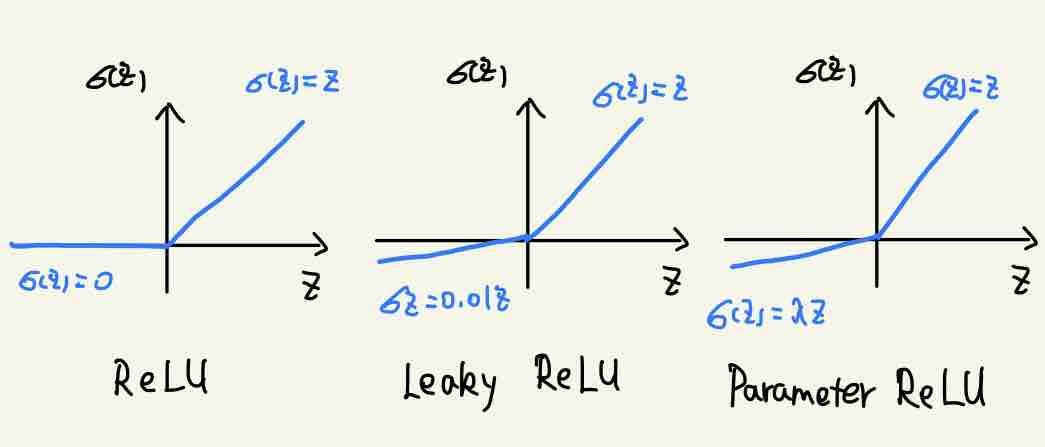 σ(z)
σ(z)=z
σ(z)=0
z
ReLU
σ(z)
σ(z)=z
σz=0.01z
z
Leaky ReLU
σ(z)
σ(z)=z
σ(z)=λz
z
Parameter ReLU